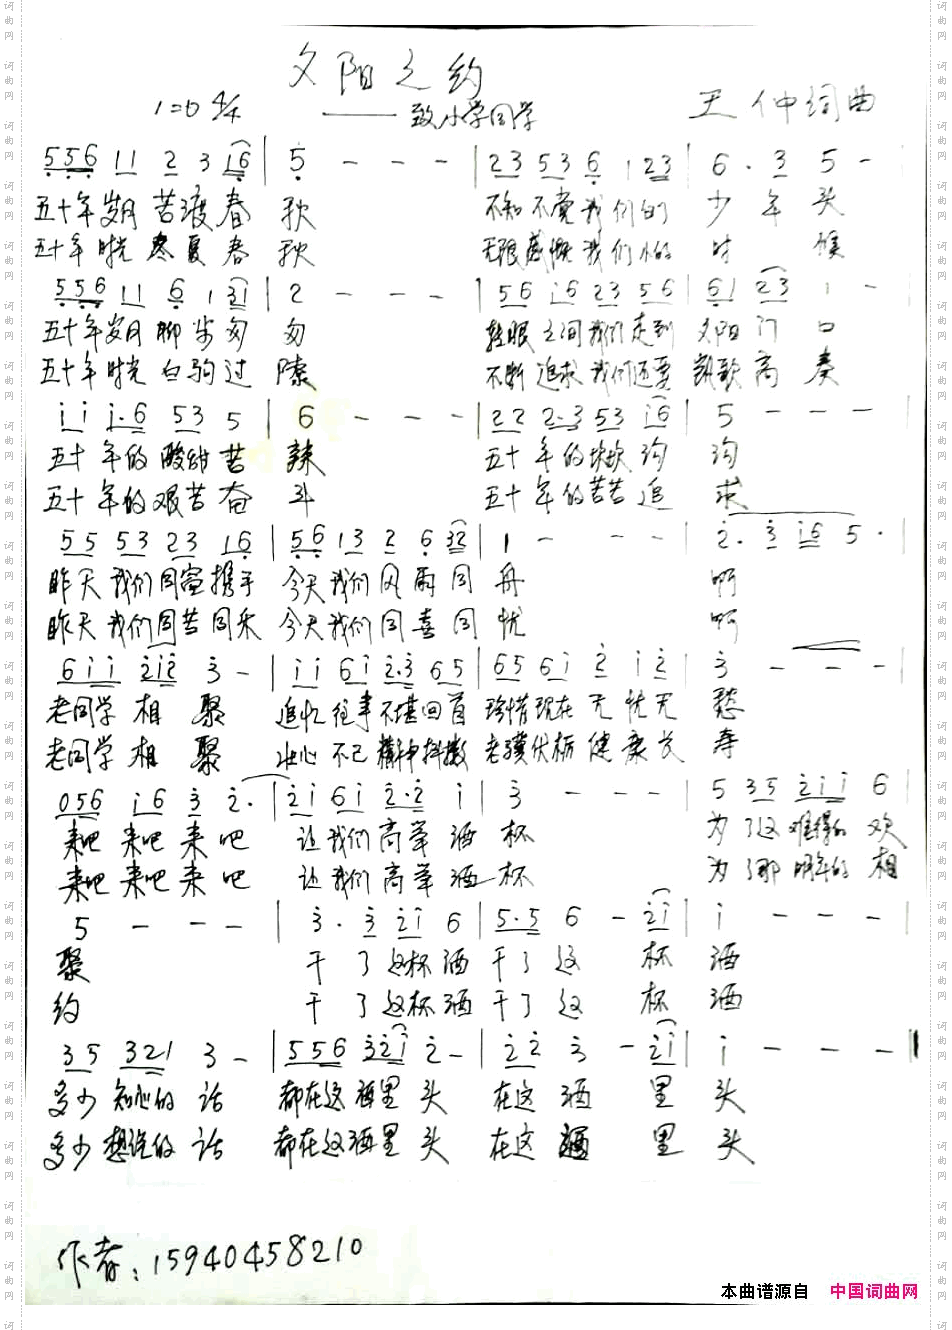 夕阳之约
1=D 4/4 ——致小学同学 王仲词曲
5 5 6 1 1 2 3 1 6 | 5 - - - | 2 3 5 3 6 1 2 3 | 6 · 3 5 -
五十年岁月苦渡春秋 不知不觉我们的少年头
五十年时光寒夏春秋 无限感慨我们小的时候
5 5 6 1 1 6 1 3 1 | 2 - - - | 5 6 i 6 2 3 5 6 | 6 1 2 3 1 -
五十年岁月脚步匆匆 转眼之间我们走到夕阳门口
五十年时光白驹过隙 不断追求我们还要凯歌高奏
i i i · 6 5 3 5 | 6 - - - | 2 2 2 · 3 5 3 i 6 | 5 - - -
五十年的酸甜苦辣 五十年的坎坎沟沟
五十年的艰苦奋斗 五十年的苦苦追求
5 5 5 3 2 3 1 6 | 5 6 1 3 2 6 3 2 | 1 - - - | 2 · 3 i 6 5 ·
昨天我们同窗携手 今天我们风雨同舟 啊
昨天我们同苦同乐 今天我们同喜同忧 啊
6 i i 2 i 2 3 - | i i 6 i 2 · 3 6 5 | 6 5 6 i 2 i 2 | 3 - - -
老同学相聚 追忆往事不堪回首 珍惜现在无忧无愁
老同学相聚 壮心不已精神抖擞 老骥伏枥健康长寿
0 5 6 i 6 3 2 · | 2 i 6 i 2 · 2 i | 3 - - - | 5 3 5 2 i i 6
来吧来吧来吧 让我们高举酒杯 为了这难得的欢
来吧来吧来吧 让我们高举酒杯 为了那明年的相
5 - - - | 3 · 3 2 i 6 | 5 · 5 6 - 2 i | i - - -
聚 干了这杯酒干了这杯酒
约 干了这杯酒干了这杯酒
3 5 3 2 1 3 - | 5 5 6 3 2 i 2 - | 2 2 3 - 2 i | i - - -
多少知心的话 都在这酒里头 在这酒里头
多少想说的话 都在这酒里头 在这酒里头
作者:15940458210
本曲谱源自 中国词曲网